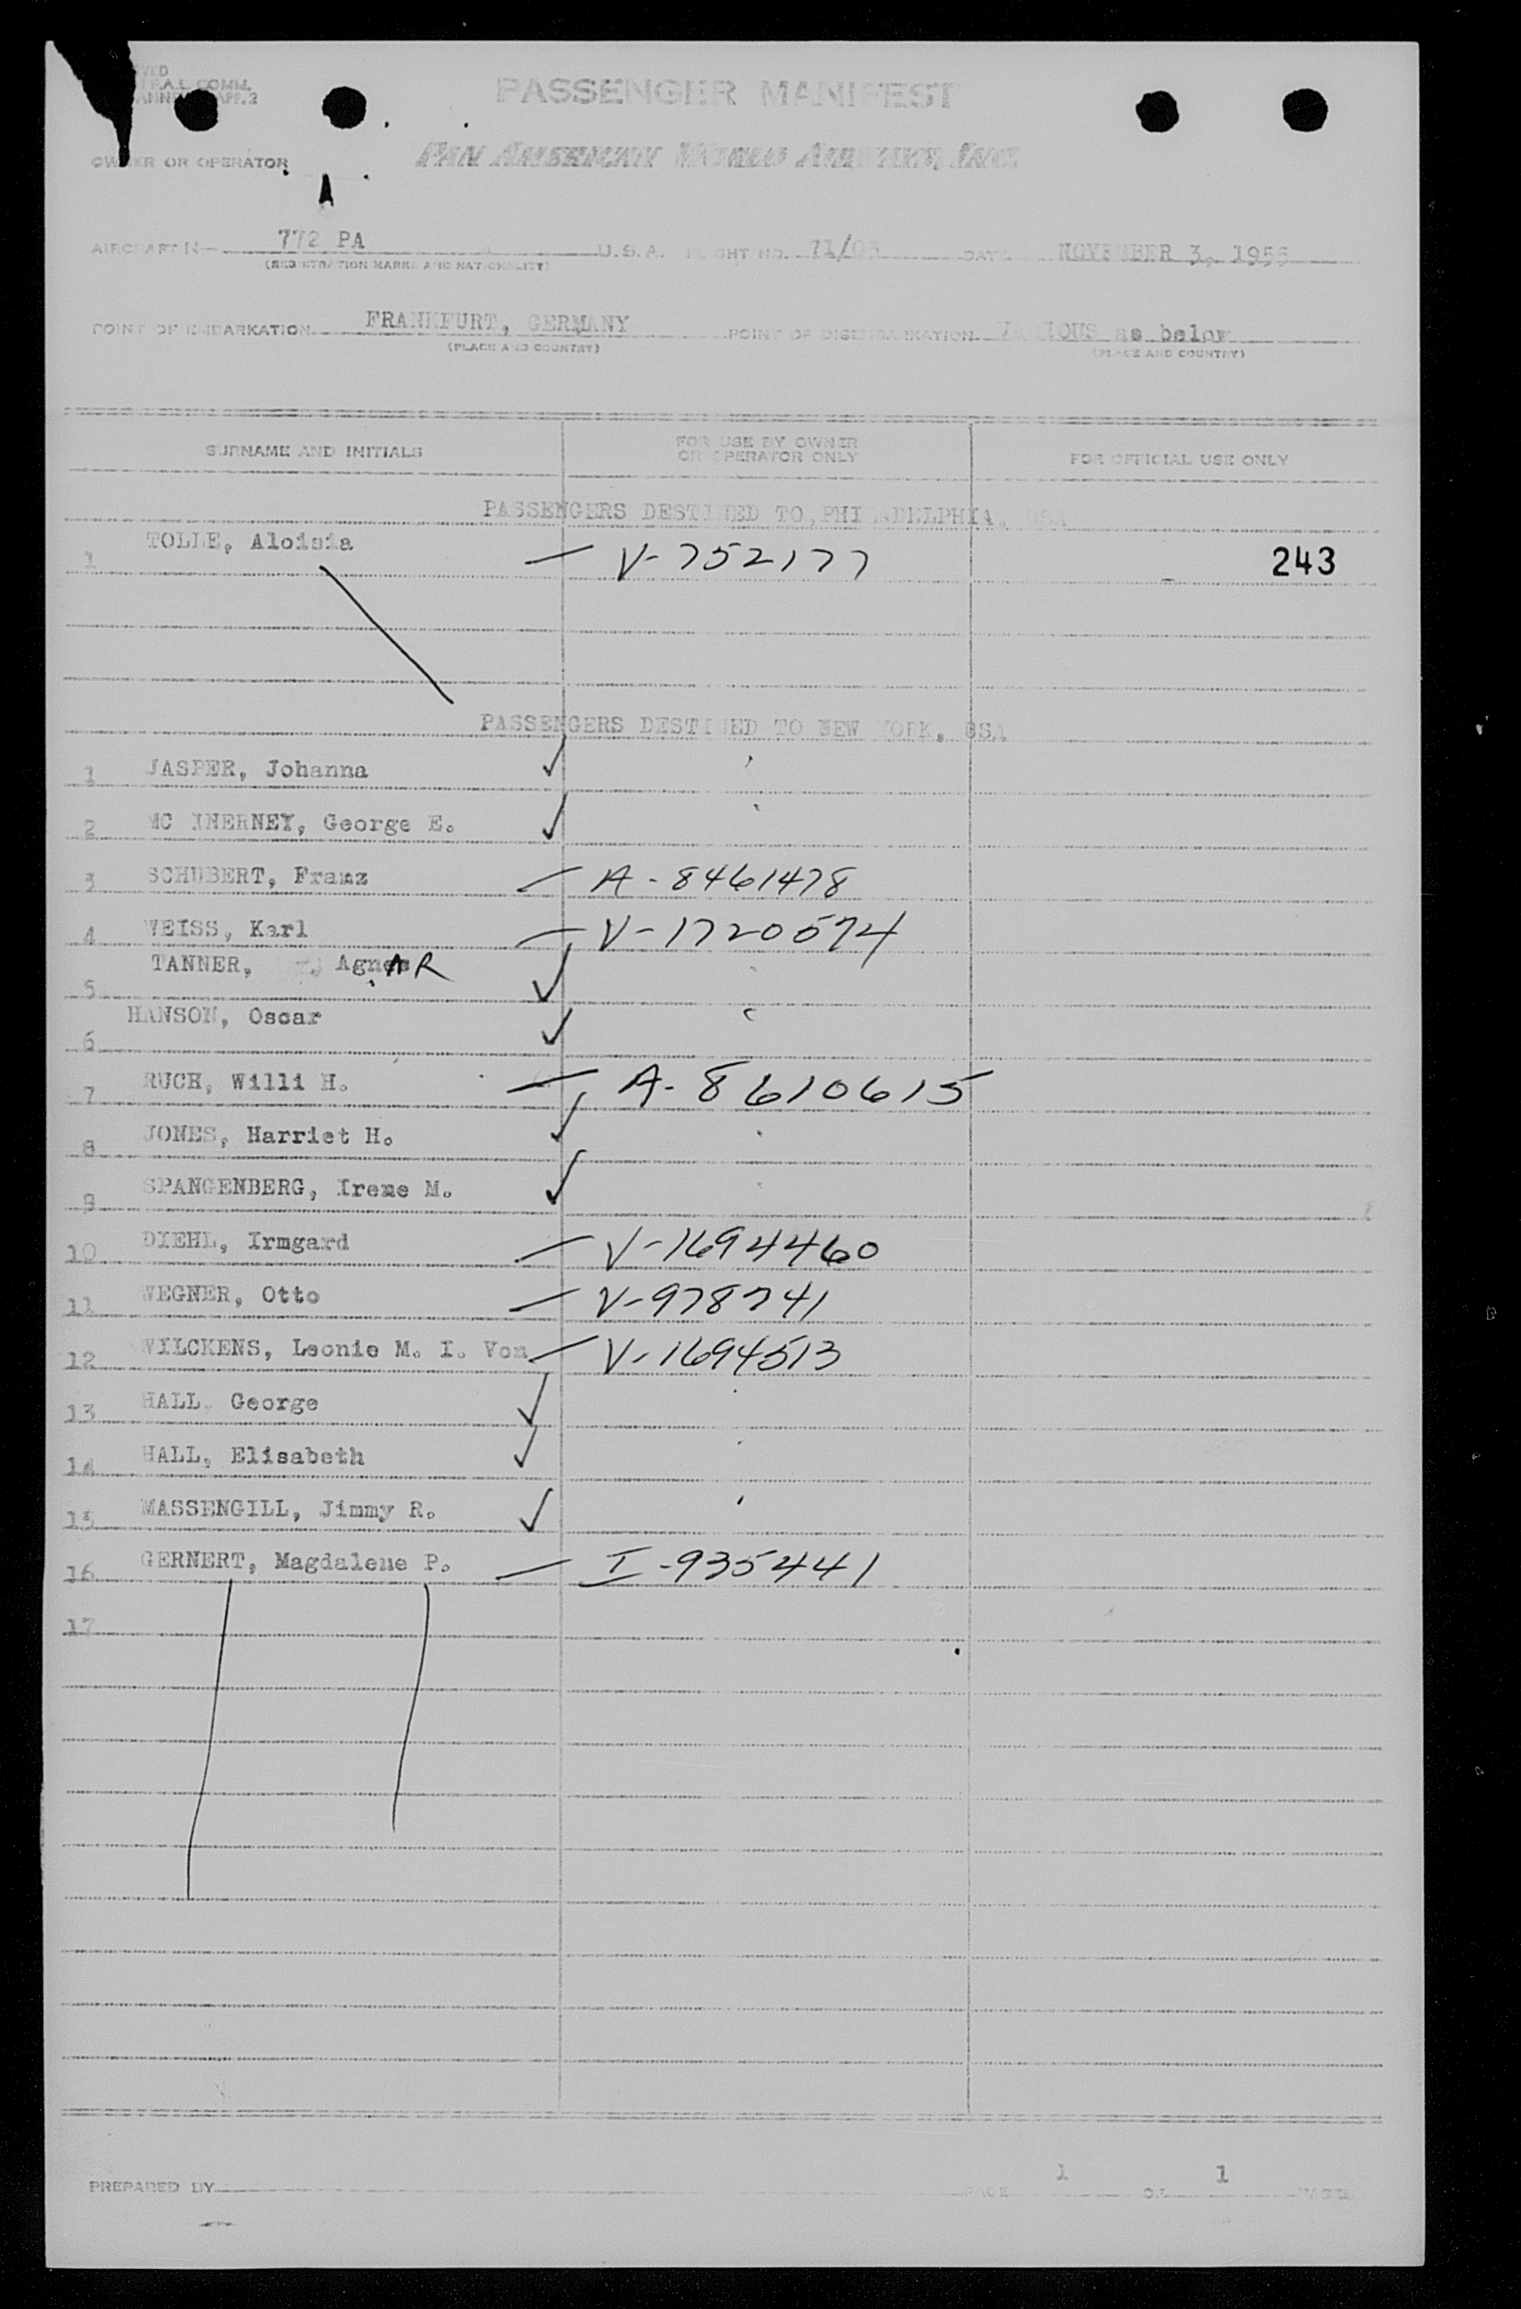 PASSENGER MANIFEST
OWNER OR OPERATOR PAN AMERICAN WORLD AIRWAYS, INC.
A
AIRCRAFT N— 772 PA U.S.A. FLIGHT NO. 71/03 DATE NOVEMBER 3, 1955
(REGISTRATION MARKS AND NATIONALITY)
POINT OF EMBARKATION FRANKFURT, GERMANY POINT OF DISEMBARKATION VARIOUS as below
(PLACE AND COUNTRY) (PLACE AND COUNTRY)
SURNAME AND INITIALS FOR USE BY OWNER OR OPERATOR ONLY FOR OFFICIAL USE ONLY
PASSENGERS DESTINED TO PHILADELPHIA, USA
1 TOLLE, Aloisia — V-752177 243
PASSENGERS DESTINED TO NEW YORK, USA
1 JASPER, Johanna ✓
2 MC INERNEY, George E. ✓
3 SCHUBERT, Franz — A-8461478
4 WEISS, Karl — V-1720574
5 TANNER, Agnes AR ✓
6 HANSON, Oscar ✓
7 RUCH, Willi H. — A-8610615
8 JONES, Harriet H. ✓
9 SPANGENBERG, Irene M. ✓
10 DIEHL, Irmgard — V-1694460
11 WEGNER, Otto — V-978741
12 WILCKENS, Leonie M. I. Von — V-1694513
13 HALL, George ✓
14 HALL, Elisabeth ✓
15 MASSENGILL, Jimmy R. ✓
16 GERNERT, Magdalene P. — I-935441
17
PREPARED BY PAGE 1 OF 1 PAGES